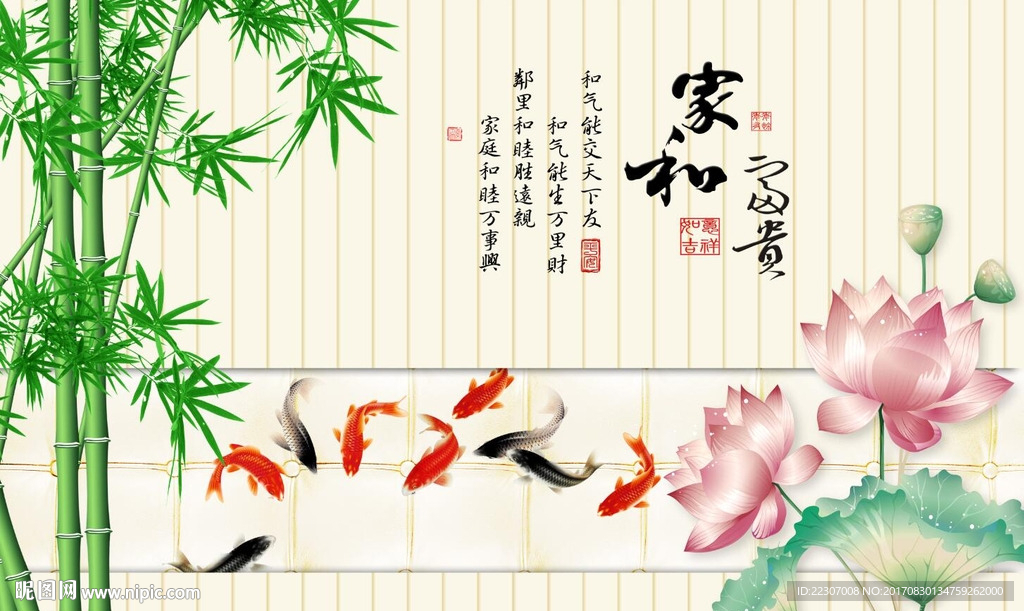 家和
富贵
如意吉祥
和气能交天下友
和气能生万里财
鄰里和睦胜遠親
家庭和睦万事興
昵图网 www.nipic.com
ID:22307008 NO:20170830134759262000